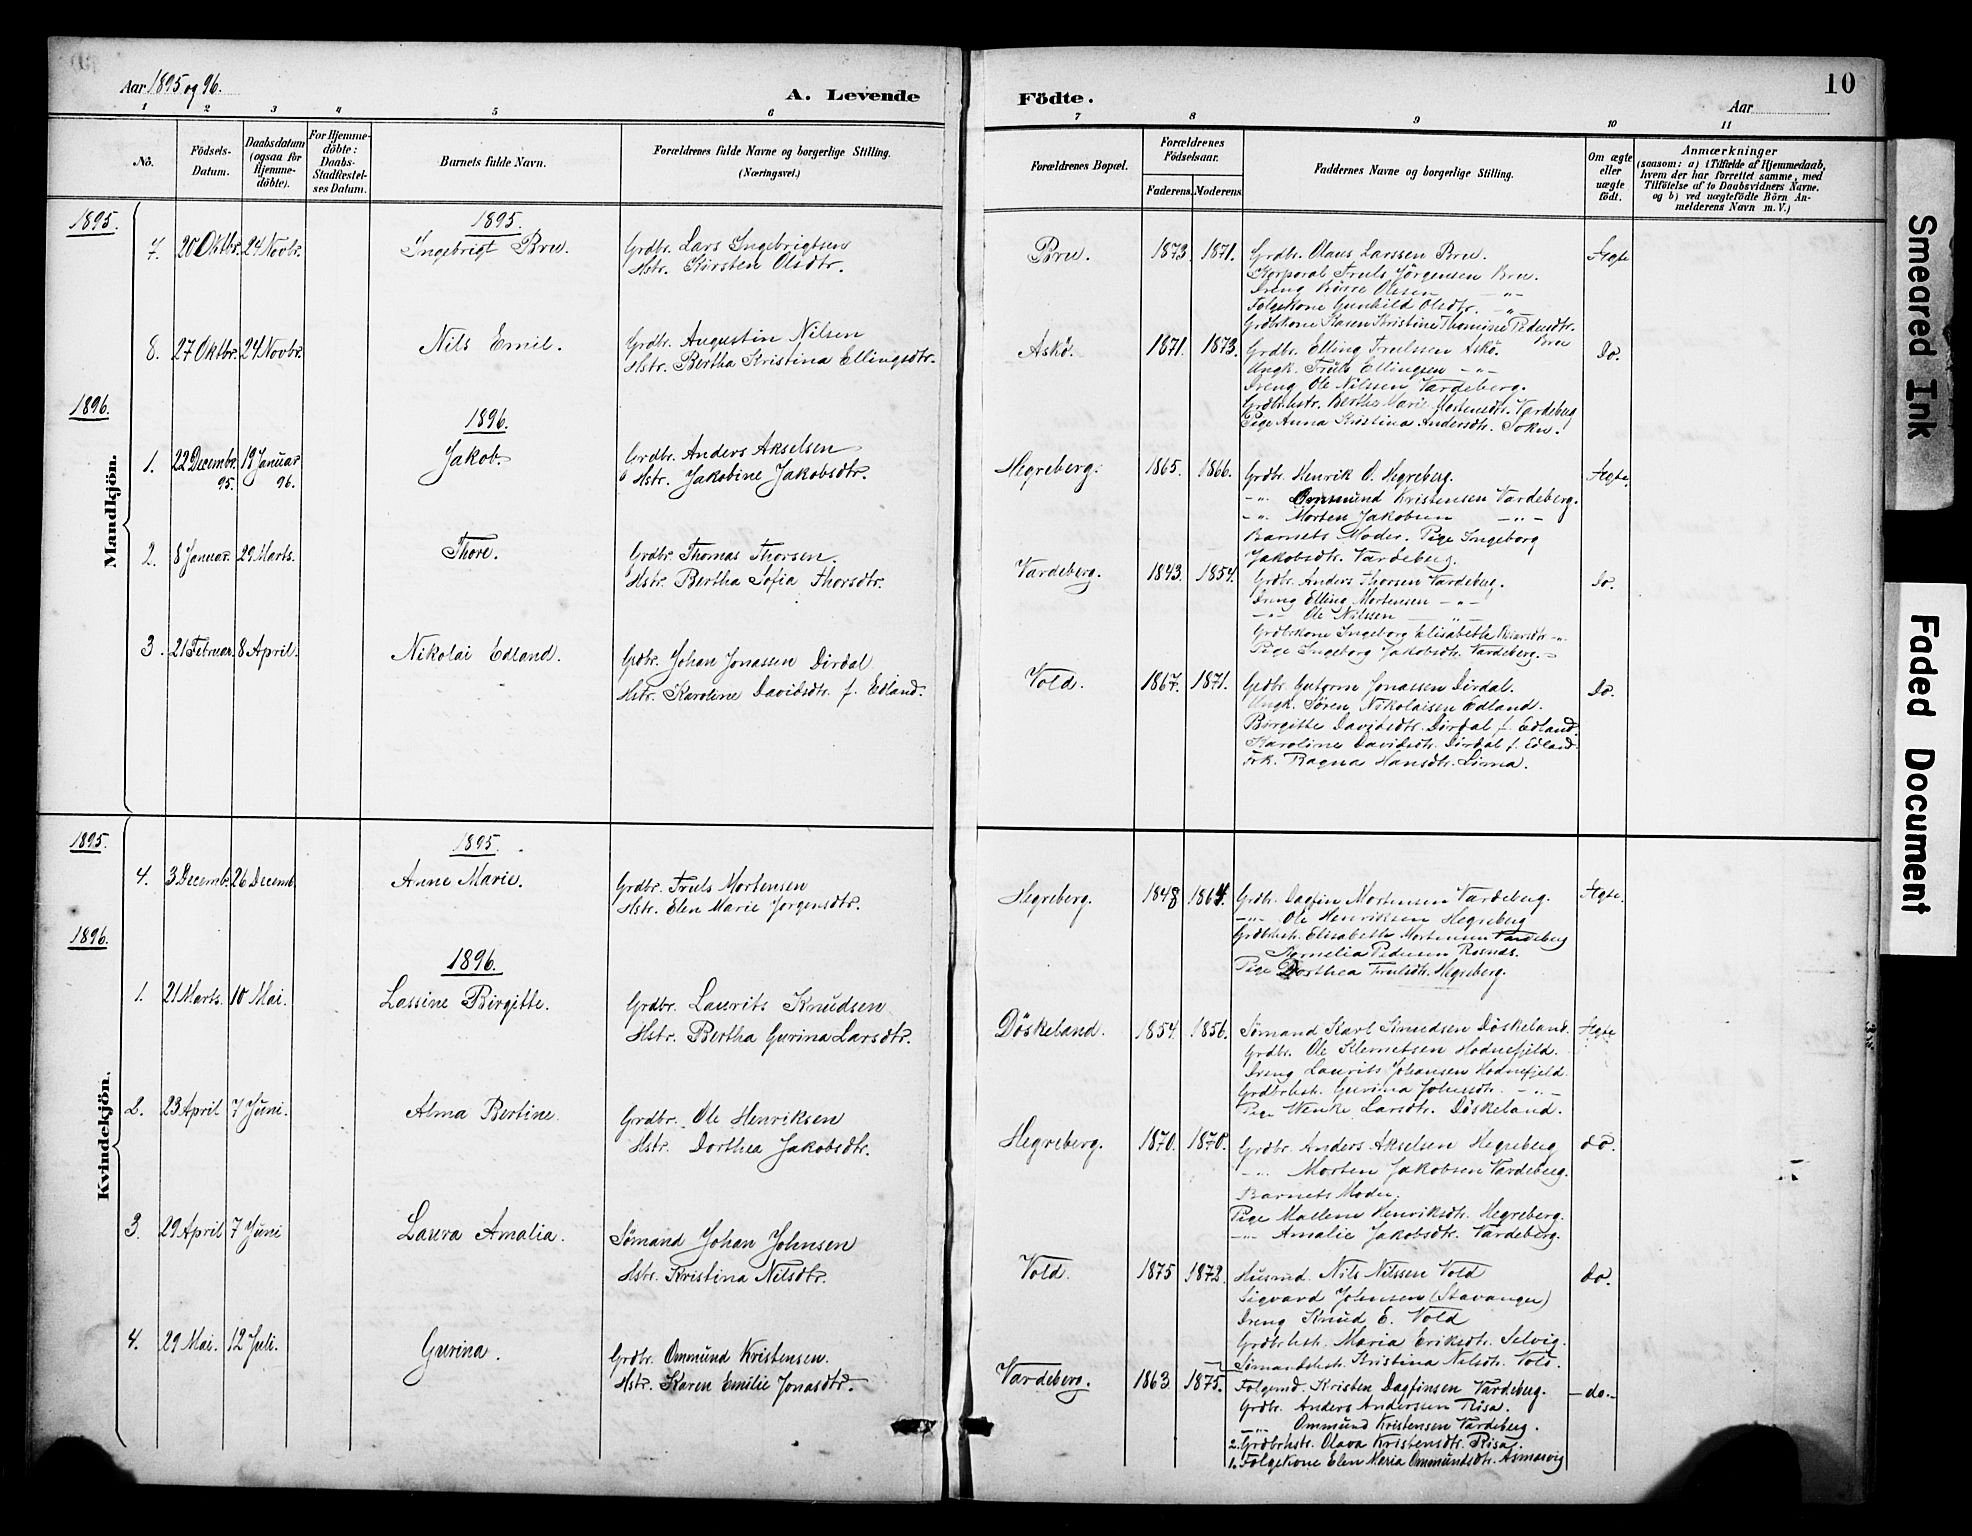 Aar 1895 og 96.
A. Levende
Födte.
Aar
10
1 2 3 4 5 6 7 8 9 10 11
No.
Födsels-Datum.
Daabsdatum (ogsaa for Hjemme-döbte).
For Hjemme-döbte: Daabs-Stadfæstel-ses Datum.
Barnets fulde Navn.
Forældrenes fulde Navne og borgerlige Stilling. (Næringsvei.)
Forældrenes Bopæl.
Forældrenes Födselsaar.
Faderens. Moderens.
Faddernes Navne og borgerlige Stilling.
Om ægte eller uægte födt.
Anmærkninger
(saasom: a) i Tilfælde af Hjemmedaab,
hvem der har forrettet samme, med
Tilföielse af to Daabsvidners Navne.
og b) ved uægtefödte Börn An-
melderens Navn m. V.)
Mandkjön.
1895.
1895.
7. 20 Oktbr. 24 Novbr. Ingebrigt Bru. Grdbr. Lars Ingebrigtsen
Hstr. Kirsten Olsdtr.
Bru. 1873. 1871. Grdbr. Olaus Larssen Bru. Ægte
Korporal Truls Jörgensen Bru.
Dreng Börre Olesen -"-
Folgekone Gunhild Olsdtr. -"-
Grdbrkone Karen Kristine Thomine Pedersdtr. Bru
8. 27 Oktbr. 24 Novbr. Nils Emil. Grdbr. Augustin Nilsen
Hstr. Bertha Kristina Ellingsdtr.
Askö. 1871. 1873. Grdbr. Elling Trulssen Askö. Do.
Ungk. Truls Ellingsen -"-
Dreng Ole Nilssen Vardeberg.
Grdbrhstr. Berthe Marie Mortensdtr. Vardeberg
Pige Anna Kristina Andersdtr. Sokn.
1896.
1896.
1. 22 Decembr. 95. 19 Januar 96. Jakob. Grdbr. Anders Akselsen
Hstr. Jakobine Jakobsdtr.
Hegreberg. 1865. 1866. Grdbr. Henrik O. Hegreberg. Ægte.
-"- Ommund Kristensen Vardeberg.
-"- Morten Jakobsen -"-
Barnets Moder. Pige Ingeborg
Jakobsdtr. Vardeberg.
2. 8 Januar. 29 Marts. Thore. Grdbr. Thomas Thorsen
Hstr. Bertha Sofia Thorsdtr.
Vardeberg. 1843. 1854. Grdbr. Anders Thorsen Vardeberg. Do.
Dreng Elling Mortensen -"-
-"- Ole Nilssen -"-
Grdbrkone Ingeborg Elisabeth -"-
Pige Ingeborg Jakobsdtr. Vardeberg.
3. 21 Februar. 8 April. Nikolai Edland. Grdbr. Johan Jonassen Dirdal
Hstr. Karoline Davidsdtr. f. Edland.
Vold. 1867. 1871. Grdbr. Gutorm Jonassen Dirdal. Do.
Ungk. Sören Nikolaisen Edland.
Birgitte Davidsdtr. Dirdal f. Edland.
Karoline Davidsdtr. Dirdal f. Edland
Frk. Ragna Hansdtr. Lima.
Kvindekjön.
1895.
1895.
4. 3 Decemb. 26 Decemb. Anne Marie. Grdbr. Truls Mortensen
Hstr. Elen Marie Jorgensdtr.
Hegreberg. 1848 1864. Grdbr. Dagfin Mortensen Vardeberg. Ægte.
-"- Ole Henriksen Hegreberg
Grdbrhstr. Elisabeth Mortensen Vardeberg
Kornelia Pedersen Rosnes.
Pige Dorthea Trulsdtr. Hegreberg.
1896.
1896.
1. 21 Marts. 10 Mai. Lassine Birgitte. Grdbr. Laurits Knudsen
Hstr. Bertha Gurina Larsdtr.
Döskeland. 1854. 1856. Sømand Karl Knudsen Döskeland. Ægte
Grdbr. Ole Klemetsen Hodnefjeld.
Dreng Laurits Johansen Hodnefjeld.
Grdbrhstr. Gurina Johnsdtr. -"-
Pige Wenke Larsdtr. Döskeland.
2. 23 April 7 Juni. Alma Bertine. Grdbr. Ole Henriksen
Hstr. Dorthea Jakobsdtr.
Hegreberg. 1870. 1870. Grdbr. Anders Akselsen Hegreberg do.
-"- Morten Jakobsen Vardeberg.
Barnets Moder.
Pige Mallene Henriksdtr. Hegreberg.
-"- Amalie Jakobsdtr. Vardeberg.
3. 29 April 7 Juni Laura Amalia. Sømand Johan Johnsen
Hstr. Kristina Nilsdtr.
Vold. 1875 1872. Husmd. Nils Nilssen Vold do.
Sigvard Johnsen (Stavanger)
Dreng Knud E. Vold
Grdbrhstr. Maria Eriksdtr. Selvig.
Sømandshstr. Kristina Nilsdtr. Vold.
4. 29 Mai. 12 Juli. Gurina. Grdbr. Ommund Kristensen.
Hstr. Karen Emilie Jonasdtr.
Vardeberg. 1863 1875. Folgemd. Kristen Dagfinsen Vardeberg. -do.-
Grdbr. Anders Anderssen Risa.
-"- Ommund Kristensen Vardeberg.
2. Grdbrhstr. Olava Kristensdtr. Risa.
1. Folgekone Elen Maria Ommundsdtr. Asmarvig
Smeared Ink
Faded Document